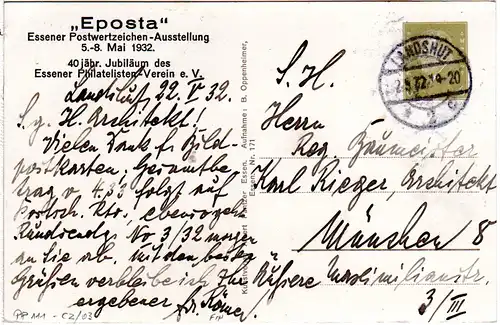 „Eposta“
Essener Postwertzeichen-Ausstellung
5.-8. Mai 1932.
40 jähr. Jubiläum des
Essener Philatelisten-Verein e. V.
Landshut 22. V. 32.
S. g. H. Architekt!
Vielen Dank f. Bild-
postkarten; Gesamtbe-
trag v. 4.33 folgt auf
Postsch. Kto., ebenso geht
Rundsendg No 3/32 morgen
an Sie ab. Mit den besten
Grüßen verbleibe ich Ihr
ergebener
Aufnahme: B. Oppenheimer,
Essen. Nr. 171
LANDSHUT
S. H.
Herrn
Reg. Baumeister
Karl Rieger, Architekt
München 8
Äußere Maximilianstr.
3/III
PP 111 - C2/03